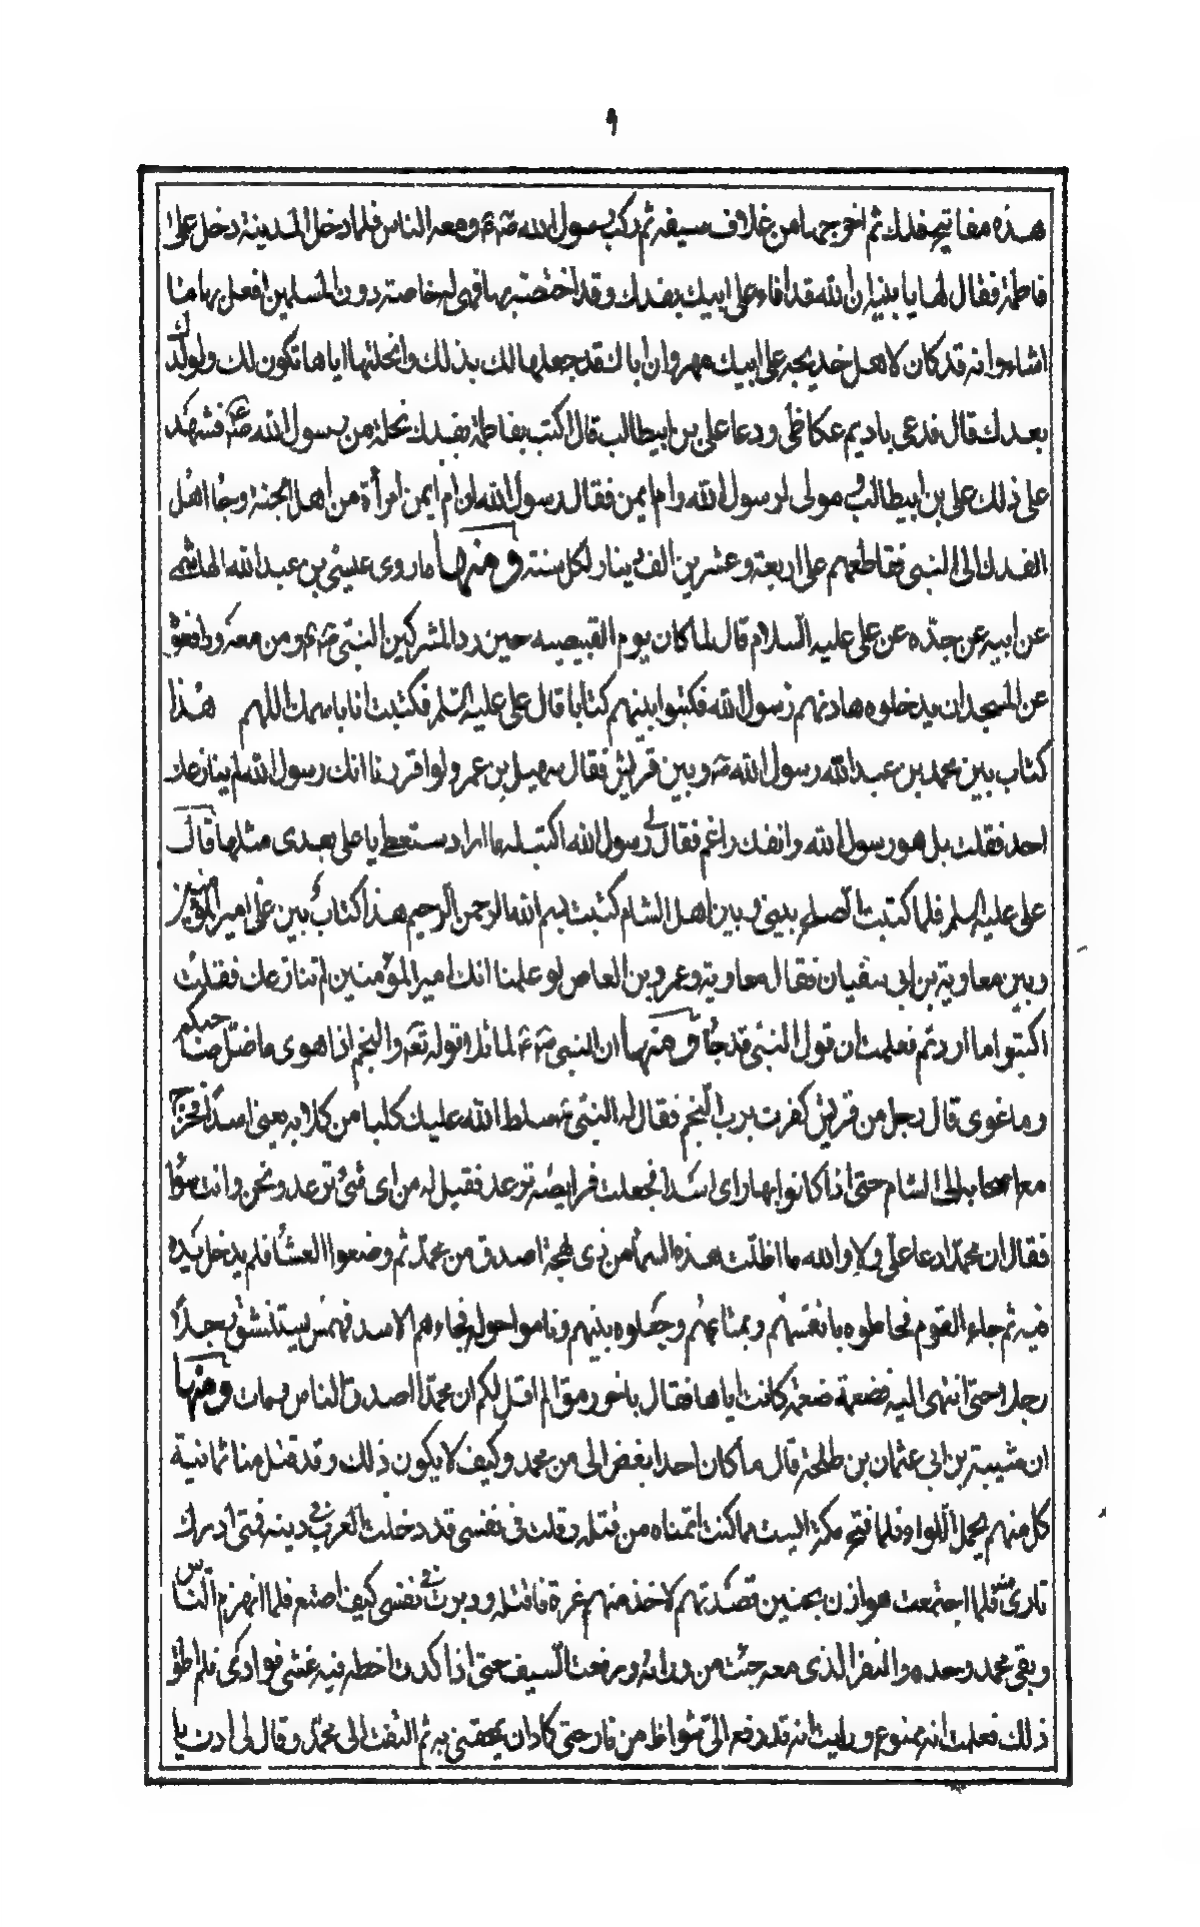 ٩
هذه مفاتيح فدك ثم اخرجها من غلاف سيفه ثم ركب رسول الله صم ومعه الناس فلما دخل المدينة دخل على
فاطمة فقال لها يا بنية ان الله قد افاء على ابيك بفدك وقد اختصه بها فهى له خاصة دون المسلمين افعل بها ما
اشاء وانه قد كان لامك خديجة على ابيك مهر وان اباك قد جعلها لك بذلك وانحلتها اياها تكون لك ولولدك
بعدك قال فدعى باديم عكاظى ودعا على بن ابيطالب قال اكتب بفاطمة بفدك نحلة من رسول الله ص فشهد
على ذلك على بن ابيطالب و مولى لرسول الله وام ايمن فقال رسول الله ان ام ايمن امرأة من اهل الجنة وجاء اهل
الفدك الى النبى فقاطعهم على اربعة وعشرين الف دينار لكل سنة ومنها ما روى عيسى بن عبد الله الهاشمى
عن ابيه عن جده عن على عليه السلام قال لما كان يوم القبيصيه حين رد المشركين النبى صم ومن معه ودافعوه
عن المسجد ان يدخلوه هادنهم رسول الله فكتبوا بينهم كتابا قال على عليه السلم فكتبت انا باسمك اللهم هذا
كتاب بين محمد بن عبد الله رسول الله ص وبين قريش فقال سهيل بن عمر ولو اقررنا انك رسول الله لم ينازعك
احد فقلت بل هو رسول الله وانفك راغم فقال لى رسول الله اكتب له ما اراد ستعطى يا على بعدى مثلها قال
على عليه السلم فلما كتبت الصلح بينى وبين اهل الشام كتبت بسم الله الرحمن الرحيم هذا كتاب بين على امير المؤمنين
وبين معاوية بن ابى سفيان فقال معاوية وعمرو بن العاص لو علمنا انك امير المؤمنين لم تنازعك فقلت
اكتبوا ما اردتم فعلمت ان قول النبى قد جاء ومنها ان النبى صم لما تلا قوله تعه والنجم اذا هوى ما ضل صاحبكم
وما غوى قال رجل من قريش كفرت برب النجم فقال له النبى ص سلط الله عليك كلبا من كلابه يعنى اسدا فخرج
مع اصحابه الى الشام حتى اذا كانوا بها راى اسدا فجعلت فرايصه ترعد فقيل له من اى شئ ترعد ونحن وانت سواء
فقال ان محمدا دعا على ولا والله ما اظلت هذه السماء من ذى لهجة اصدق من محمد ثم وضعوا العشاء فلم يدخل يده
فيه ثم جاء القوم فحاطوه بانفسهم وبمتاعهم وجعلوه بينهم وناموا حوله فجاءهم الاسد فهمس يستنشق رجلا
رجلا حتى انتهى اليه فضغمه ضغمة كانت اياها فقال باخر رمق الم اقل لكم ان محمدا اصدق الناس ومات ومنها
ان شيبة بن ابى عثمان بن طلحة قال ما كان احد ابغض الى من محمد وكيف لا يكون ذلك وقد قتل منا ثمانية
كل منهم يحمل اللواء فلما فتح مكة ايست مما كنت اتمناه من قتله وقلت فى نفسى قد دخلت العرب فى دينه فمتى ادرك
ثارى منه فلما اجتمعت هوازن بحنين قصدتهم لاخذ منهم غرة فاقتله ودبرت فى نفسى كيف اصنع فلما انهزم الناس
وبقى محمد وحده والنفر الذى معه جئت من ورائه ورفعت السيف حتى اذا كدت احطه فيه غشى فوادى فلم اطق
ذلك فعلمت انه ممنوع ورايت انه قد رفع الى شواظ من نار حتى كاد ان يمحقنى به ثم التفت الى محمد وقال لى ادن يا